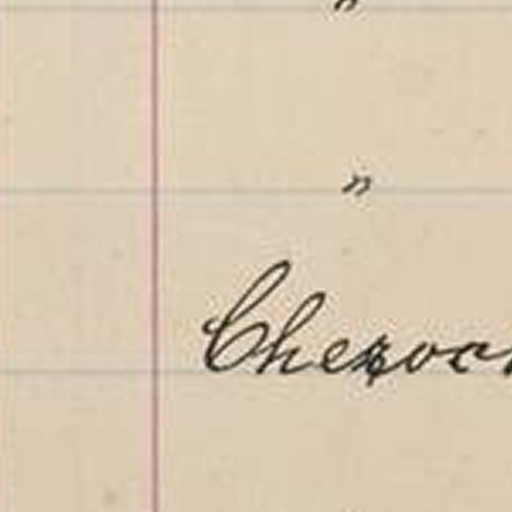 "
"
Cheroc